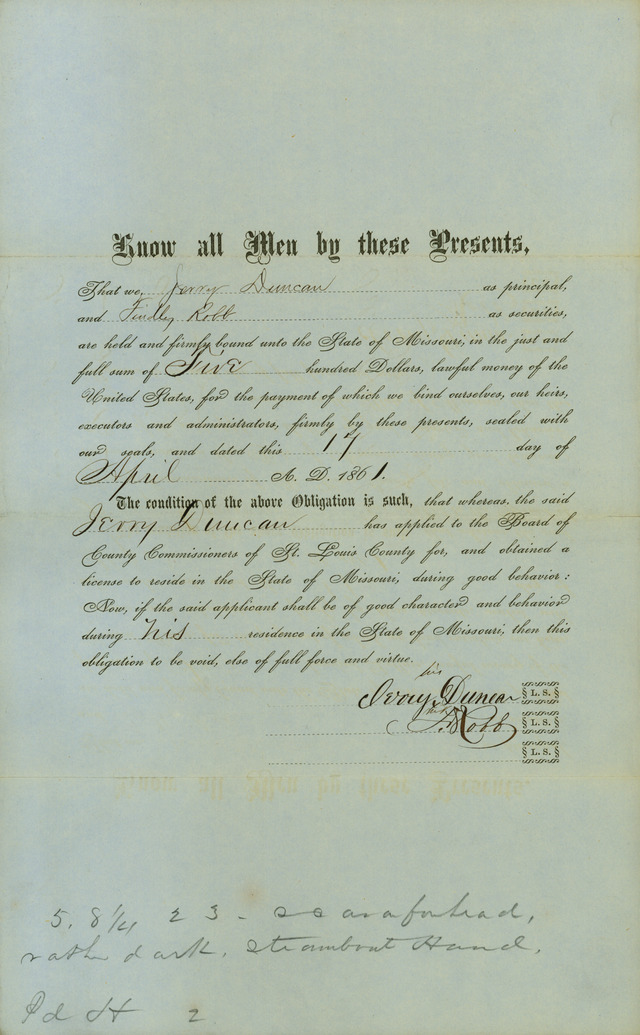 Know all Men by these Presents,
That we, Jerry Duncan as principal,
and Findley Robb as securities,
are held and firmly bound unto the State of Missouri, in the just and
full sum of Five hundred Dollars, lawful money of the
United States, for the payment of which we bind ourselves, our heirs,
executors and administrators, firmly by these presents, sealed with
our seals, and dated this 17 day of
April A. D. 1861.
The condition of the above Obligation is such, that whereas, the said
Jerry Duncan has applied to the Board of
County Commissioners of St. Louis County for, and obtained a
license to reside in the State of Missouri, during good behavior:
Now, if the said applicant shall be of good character and behavior
during his residence in the State of Missouri, then this
obligation to be void, else of full force and virtue.
his
Jerry Duncan L. S.
F. Robb L. S.
L. S.
5. 8 1/4 23 - forhead,
rather dark. Steamboat Hand.
Pd H 2